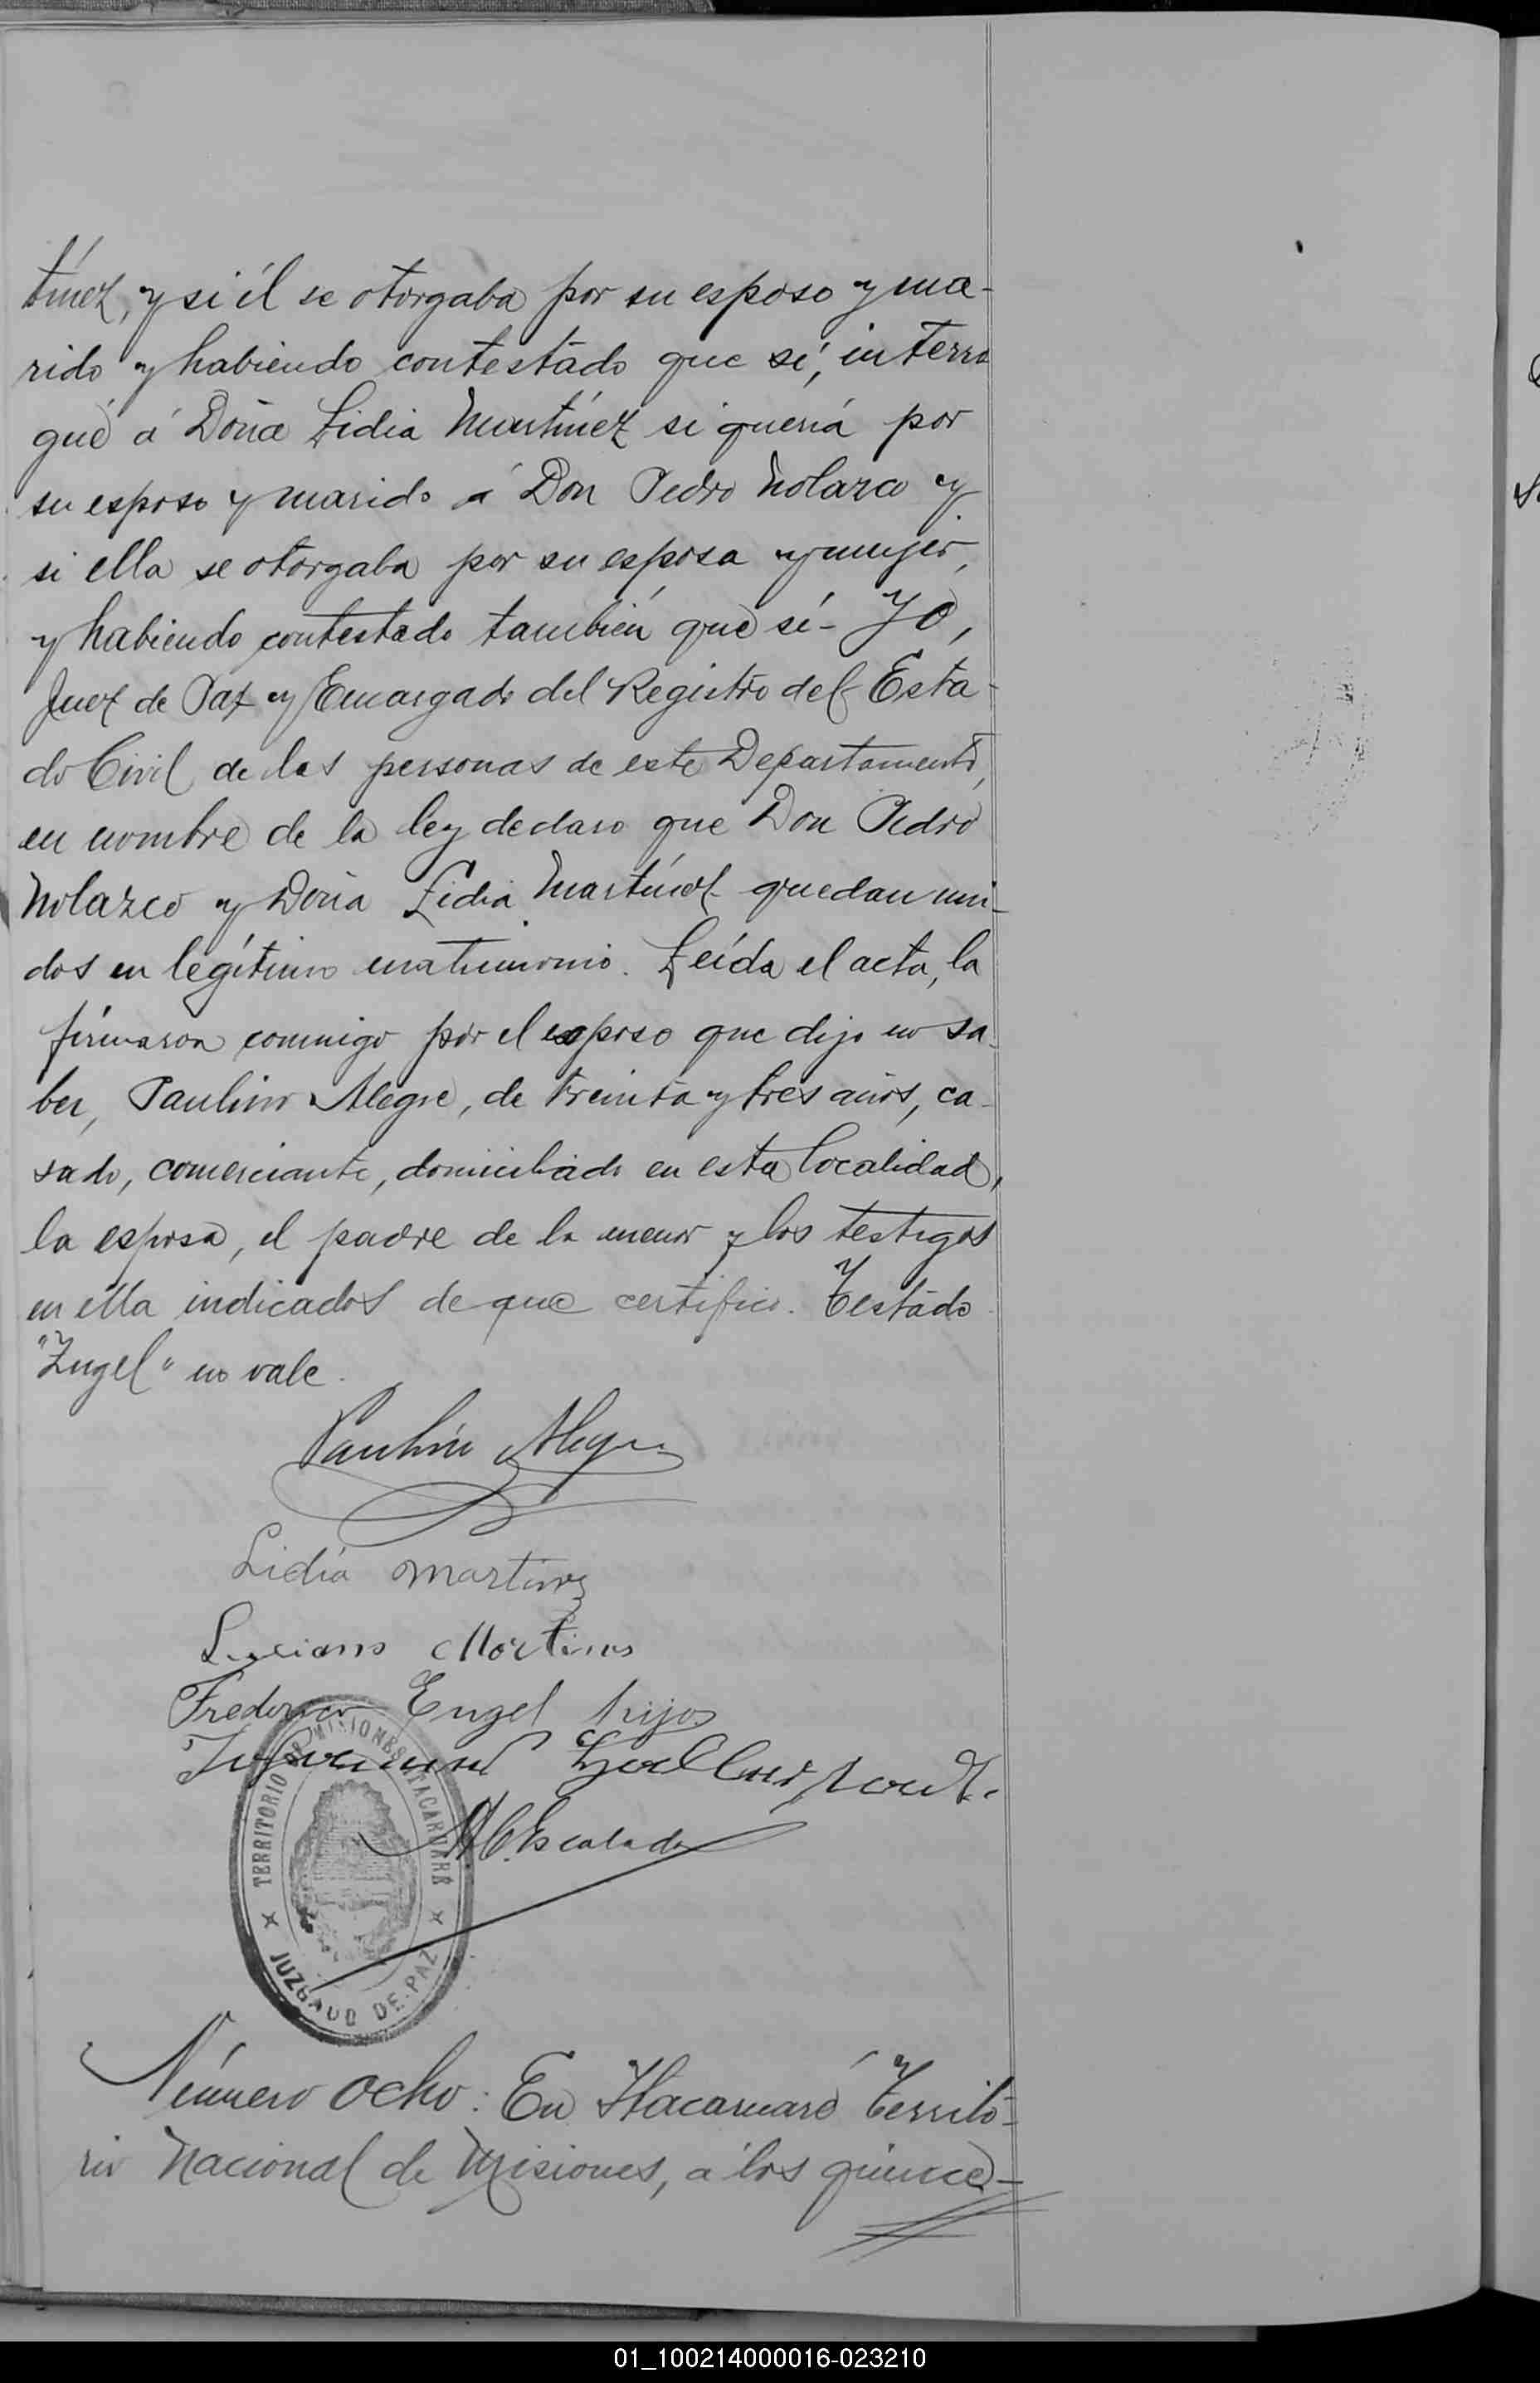 tínez, y si él se otorgaba por su esposo y ma-
rido y habiendo contestado que sí, interro
gué á Doña Lidia Martínez si quería por
su esposo y marido á Don Pedro Nolazco y
si ella se otorgaba por su esposa y mujer,
y habiendo contestado también que sí - Yo,
Juez de Paz y Encargado del Registro del Esta-
do Civil de las personas de este Departamento,
en nombre de la ley declaro que Don Pedro
Nolazco y Doña Lidia Martínez quedan uni-
dos en legítimo matrimonio. Leída el acta, la
firmaron conmigo por el esposo que dijo no sa-
ber, Paulino Alegre, de treinta y tres años, ca-
sado, comerciante, domiciliado en esta localidad,
la esposa, el padre de la menor y los testigos
en ella indicados de que certifico. Testado
"Zugel" no vale.
Paulino Alegre
Lidia Martinez
Luciano Martines
Frederico Engel hijo
Escalada
TERRITORIO DE MISIONES ITACARUARÉ
JUZGADO DE PAZ
Número ocho: En Itacaruaré Territo-
rio Nacional de Misiones, á los quince-
01_100214000016-023210